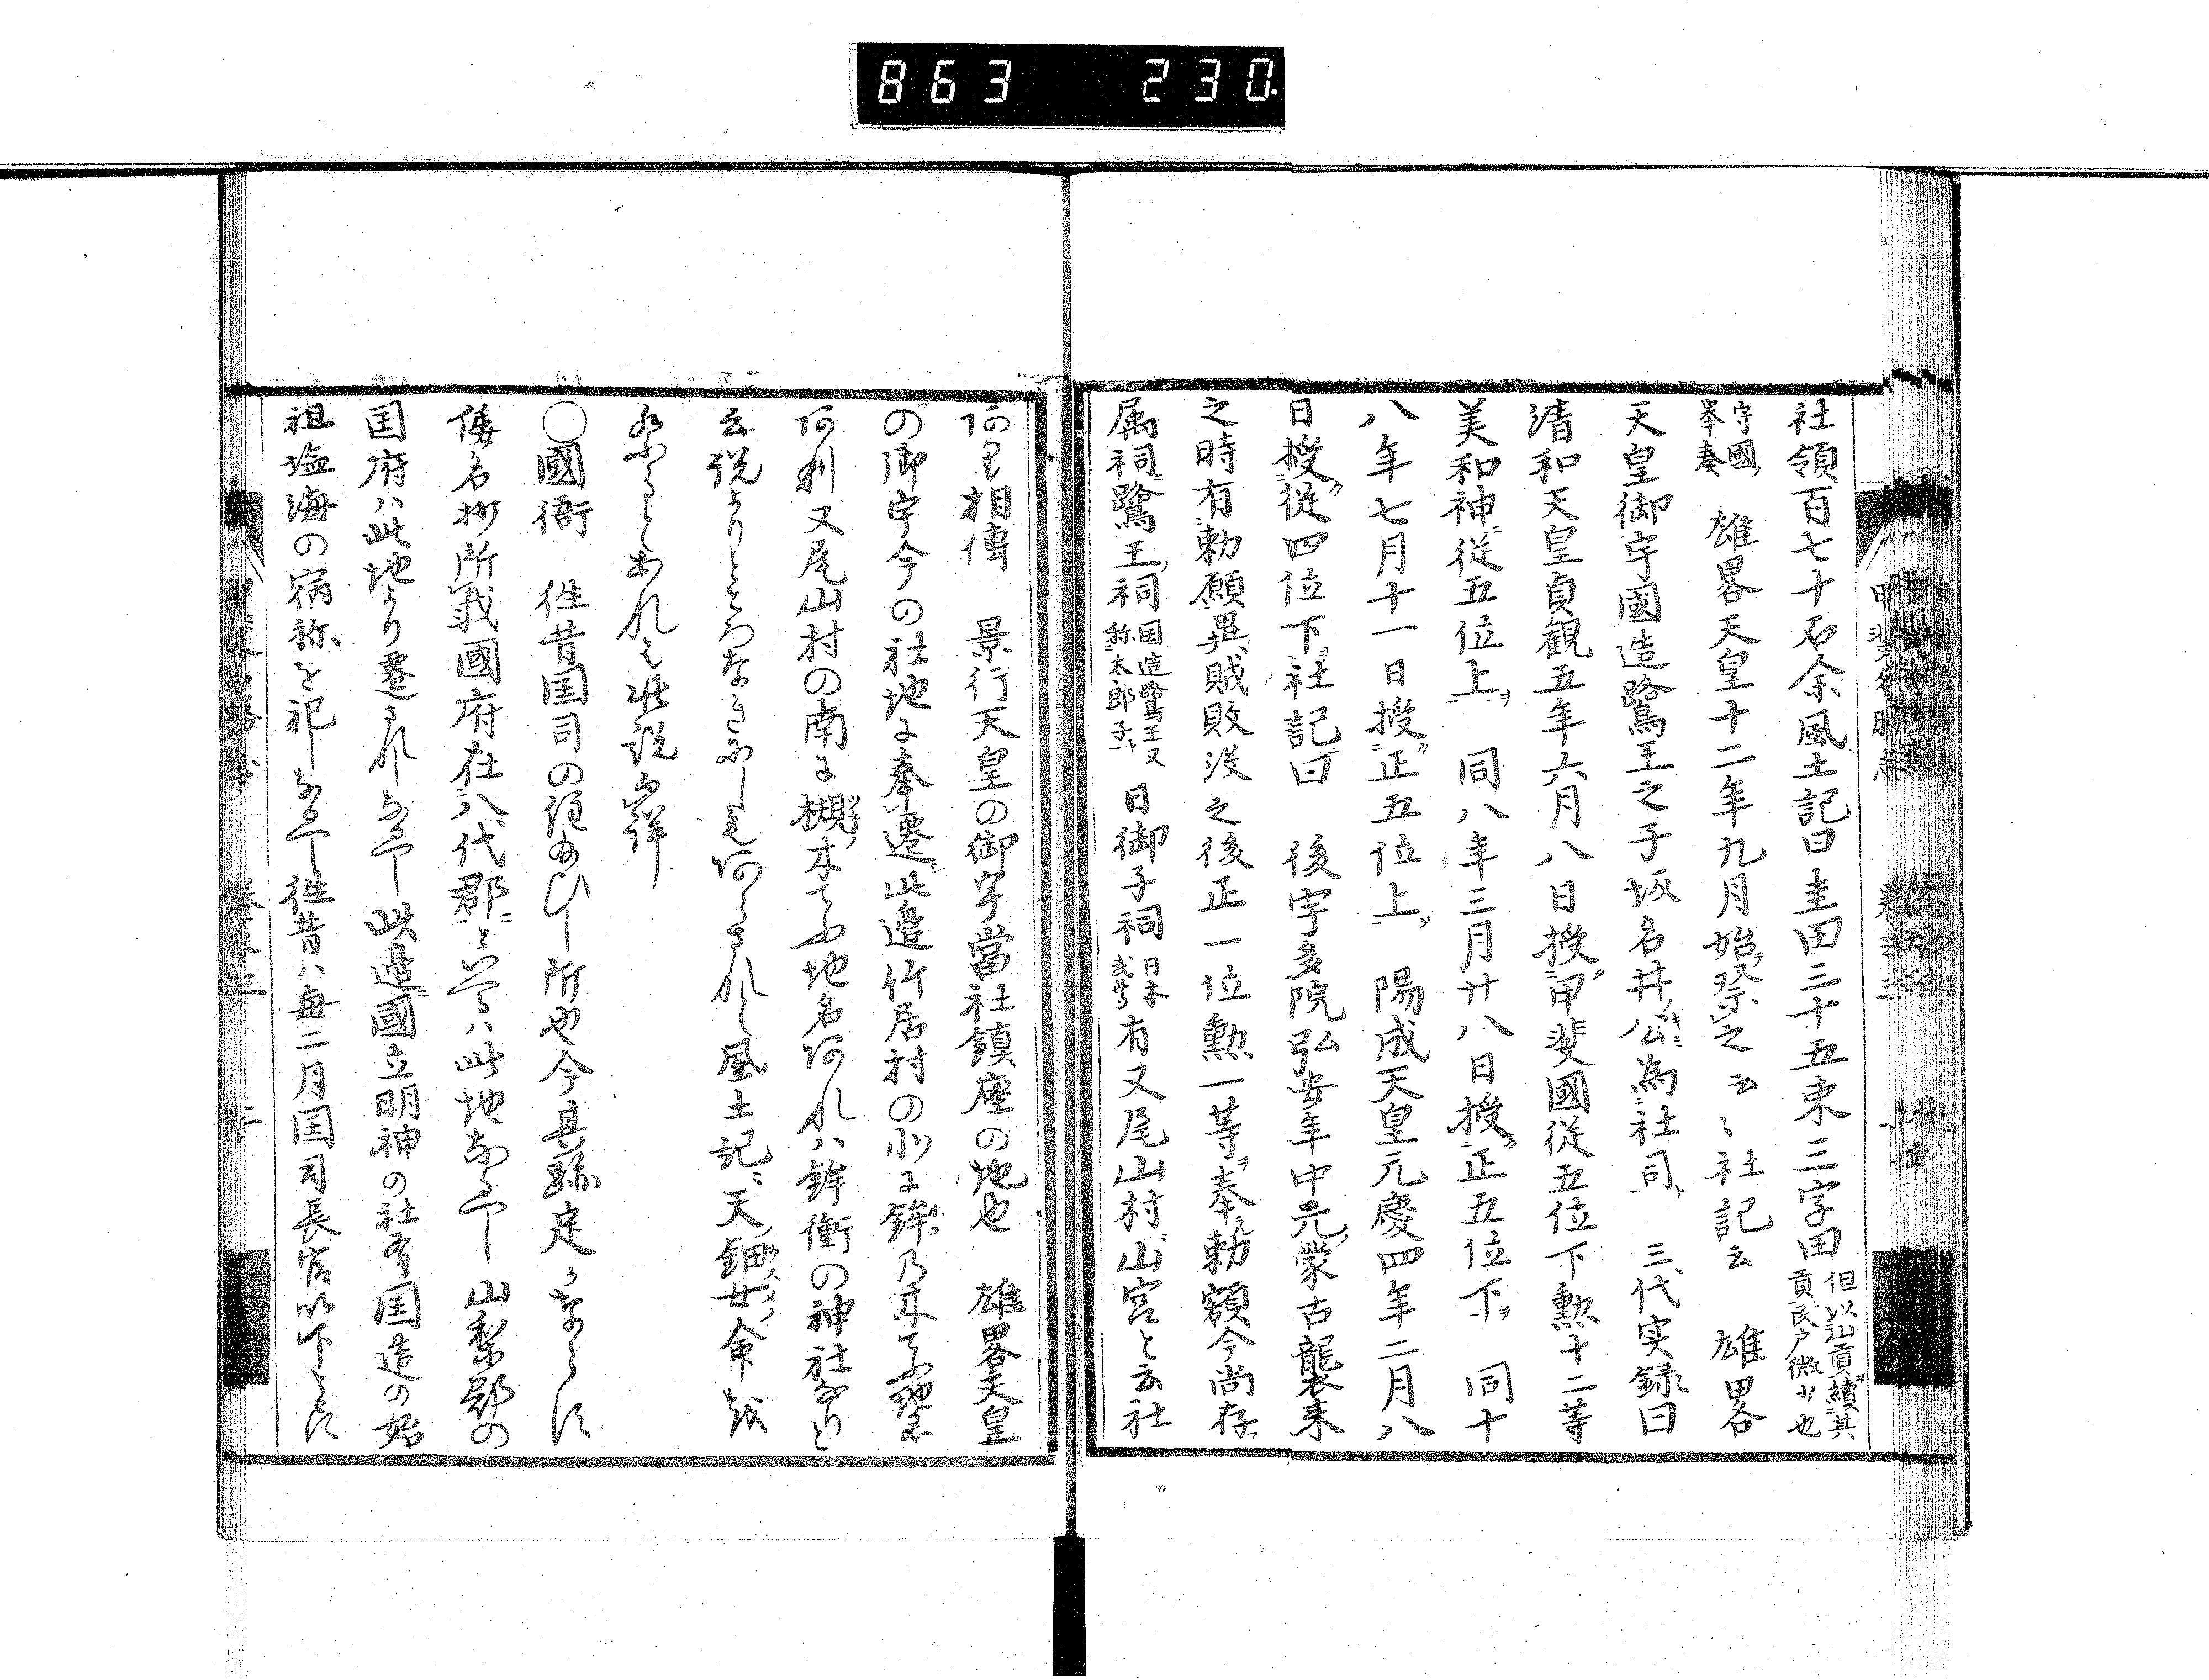 863 230.
社領百七十石余風土記曰圭田三十五束三字田 但以山貢續其貢民戸微少也
守國峯奏 雄畧天皇十二年九月始祭之云〻社記云 雄畧
天皇御宇國造鹭王之子坂名井公為社司 三代実録曰
清和天皇貞觀五年六月八日授甲斐國従五位下勲十二等
美和神従五位上 同八年三月廿八日授正五位下 同十
八年七月十一日授正五位上 陽成天皇元慶四年二月八
日授従四位下社記曰 後宇多院弘安年中元蒙古襲来
之時有勅願異賊敗没之後正一位勲一等奉勅額今尚存
属祠鷺王祠 国造鷺王又称太郎子 日御子祠 日本武尊 有又尾山村山宮と云社
阿り相傳 景行天皇の御宇當社鎮座の地也 雄畧天皇
の御宇今の社地に奉遷此邉竹居村の小に鉾乃木てふ地名
阿利又尾山村の南に槻木てふ地名阿れハ鉾衝の神社なりと
云説よりところなきにしも阿らされと風土記天鈿女命越
祭ふるとあれと此説不詳
○國衙 徃昔国司の住給ひし所也今其跡定かならす
倭名抄所載國府在八代郡といへるハ此地なるへし山梨郡の
国府ハ此地より遷されしなるへし此邉國立明神の社有国造の始
祖塩海の宿祢を祀しなるへし徃昔ハ毎二月国司長官以下ここに